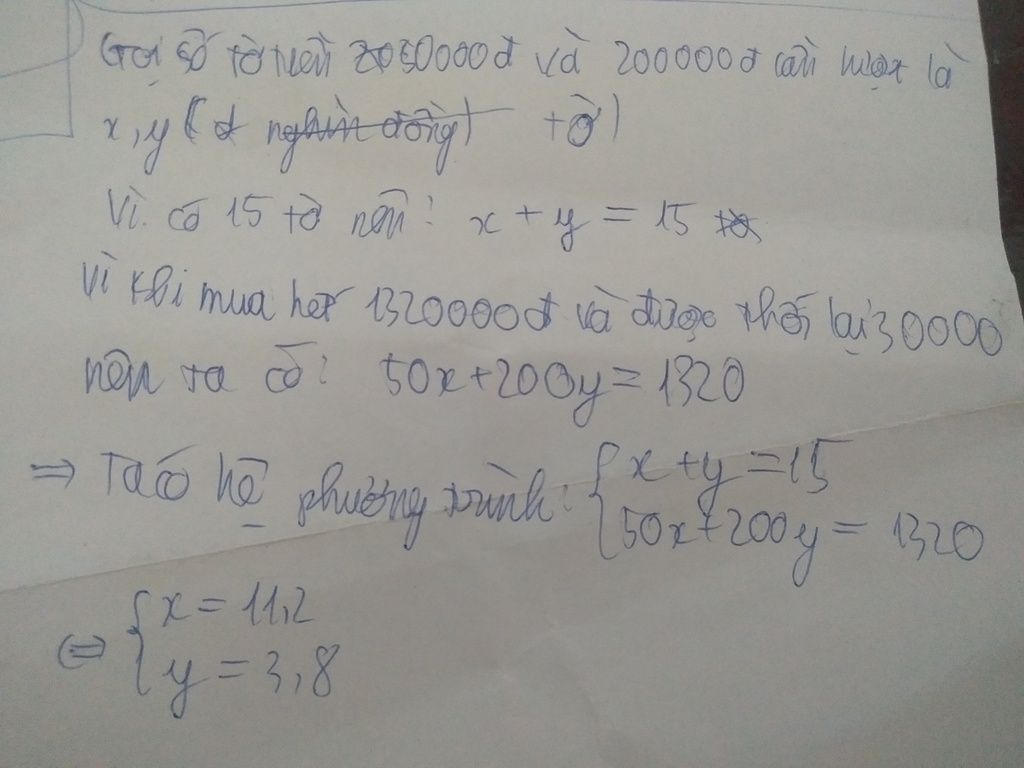 Gọi số tờ tiền 50000đ và 200000đ lần lượt là
x, y (đ nghìn đồng) tờ)
Vì có 15 tờ nên: x + y = 15 tờ
Vì khi mua hết 1320000đ và được thối lại 30000
nên ta có: 50x+200y = 1320
⇒ Ta có hệ phương trình: { x + y = 15
50x+200y = 1320
⇔ { x = 11,2
y = 3,8